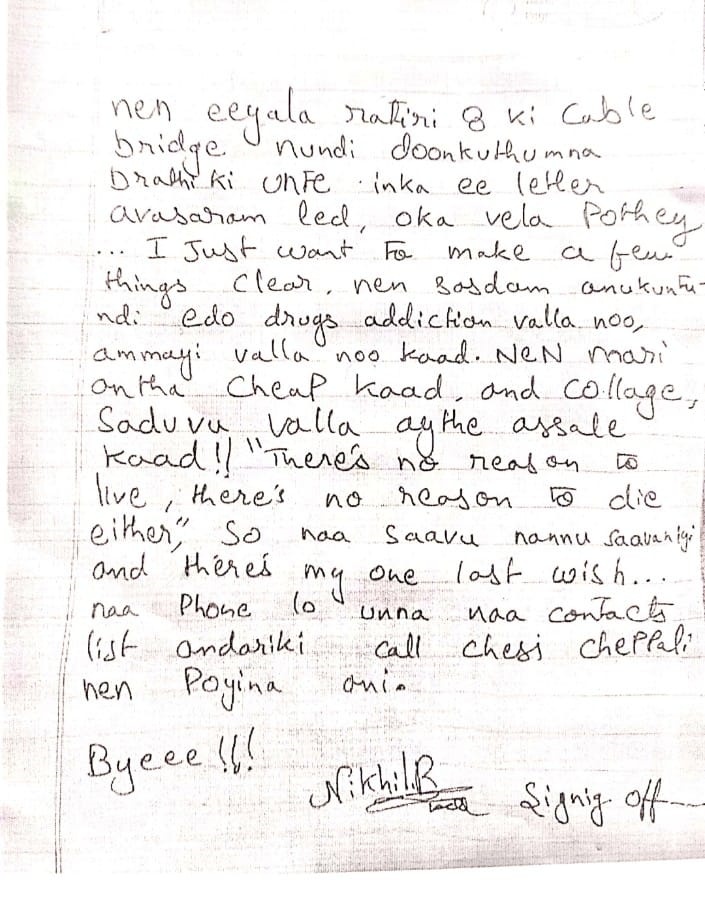 nen eeyala ratiri 8 ki Cable
bridge nundi doonkuthumna
Brathi ki unte inka ee letter
avasaram led, oka vela Pothey
... I Just want to make a few
things clear, nen sasdam anukuntu-
ndi edo drugs addiction valla noo,
ammayi valla noo kaad. NeN mari
antha cheap kaad, and collage,
Saduvu valla aythe assale
kaad!! "There's no reason to
live, there's no reason to die
either," So naa saavu nannu saavaniyi
and there's my one last wish...
naa Phone lo unna naa contacts
list andariki call chesi cheppali
nen Poyina ani.
Byeee!!!
Nikhil.B
Signig off